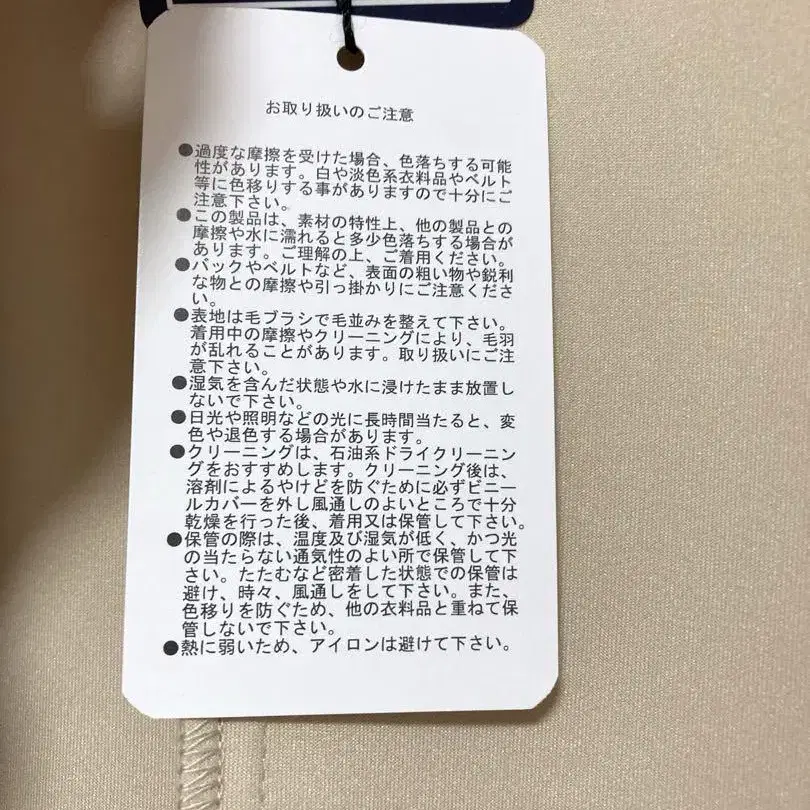 お取り扱いのご注意
●過度な摩擦を受けた場合、色落ちする可能
性があります。白や淡色系衣料品やベルト
等に色移りする事がありますので十分にご
注意下さい。
●この製品は、素材の特性上、他の製品との
摩擦や水に濡れると多少色落ちする場合が
あります。ご理解の上、ご着用ください。
●バックやベルトなど、表面の粗い物や鋭利
な物との摩擦や引っ掛かりにご注意くださ
い。
●表地は毛ブラシで毛並みを整えて下さい。
着用中の摩擦やクリーニングにより、毛羽
が乱れることがあります。取り扱いにご注
意下さい。
●湿気を含んだ状態や水に浸けたまま放置し
ないで下さい。
●日光や照明などの光に長時間当たると、変
色や退色する場合があります。
●クリーニングは、石油系ドライクリーニン
グをおすすめします。クリーニング後は、
溶剤によるやけどを防ぐために必ずビニー
ルカバーを外し風通しのよいところで十分
乾燥を行った後、着用又は保管して下さい。
●保管の際は、温度及び湿気が低く、かつ光
の当たらない通気性のよい所で保管して下
さい。たたむなど密着した状態での保管は
避け、時々、風通しをして下さい。また、
色移りを防ぐため、他の衣料品と重ねて保
管しないで下さい。
●熱に弱いため、アイロンは避けて下さい。